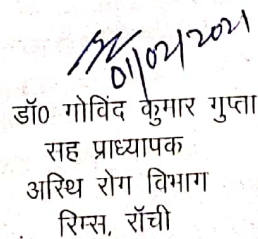 01/02/2021
डॉ० गोविंद कुमार गुप्ता
सह प्राध्यापक
अस्थि रोग विभाग
रिम्स, रॉची